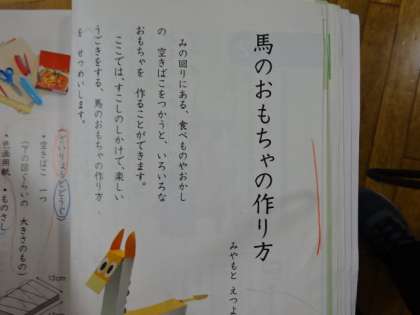 馬のおもちゃの作り方
みやもと えつよ
みの回りにある、食べものやおかし
の 空きばこをつかうと、いろいろな
おもちゃを 作ることができます。
ここでは、すこしのしかけで、楽しい
うごきをする、馬のおもちゃの作り方
を せつめいします。
〈ざいりょうとどうぐ〉
・空きばこ 一つ
大きさのもの)
・色画用紙 ・ものさし
12cm